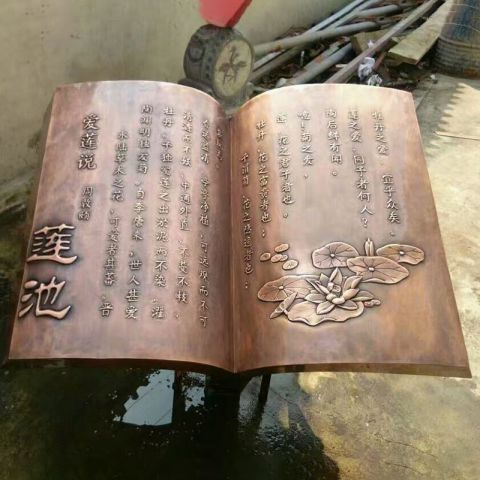 莲池
爱莲说
周敦颐
水陆草木之花，可爱者甚蕃。晋
陶渊明独爱菊。自李唐来，世人甚爱
牡丹。予独爱莲之出淤泥而不染，濯
清涟而不妖，中通外直，不蔓不枝，
香远益清，亭亭净植，可远观而不可
予谓菊，花之隐逸者也；
牡丹，花之富贵者也；
莲，花之君子者也。
噫！菊之爱，
陶后鲜有闻。
莲之爱，同予者何人？
牡丹之爱，宜乎众矣。